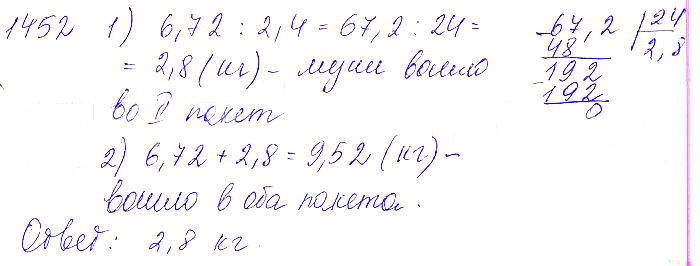 1452 1) 6,72 : 2,4 = 67,2 : 24 =
= 2,8 (кг) – муки вошло
во II пакет
2) 6,72 + 2,8 = 9,52 (кг) –
вошло в оба пакета.
Ответ: 2,8 кг.
67,2 | 24
48 2,8
192
192
0